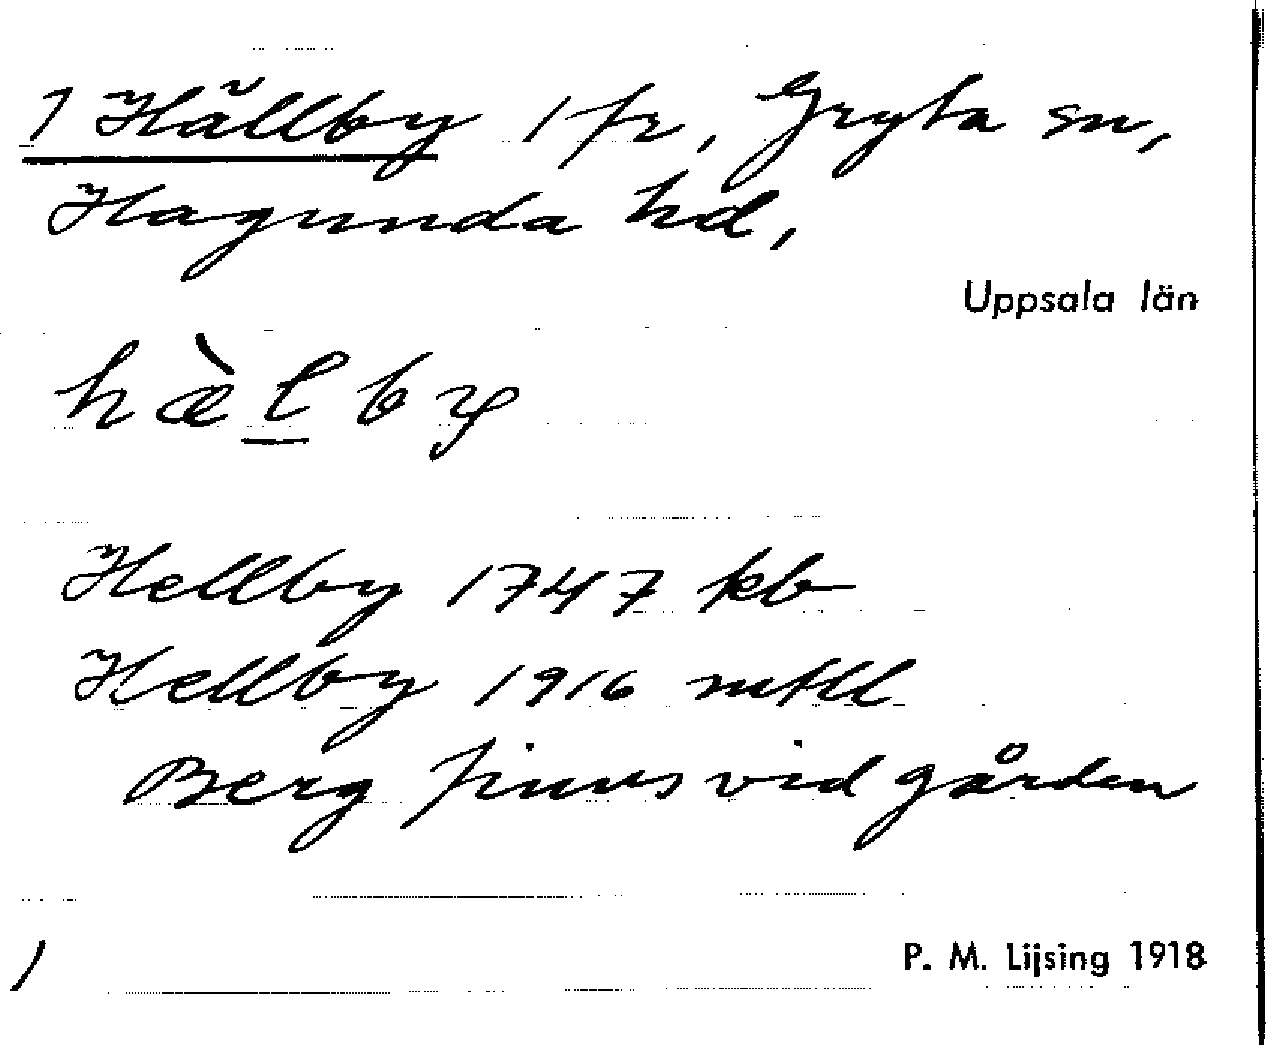 1 Hällby 1 fr, Gryta sn,
Hagunda hd,
Uppsala län
hæ̀lby
Hellby 1747 kb
Hellby 1916 mtll
Berg finns vid gården
1
P. M. Lijsing 1918